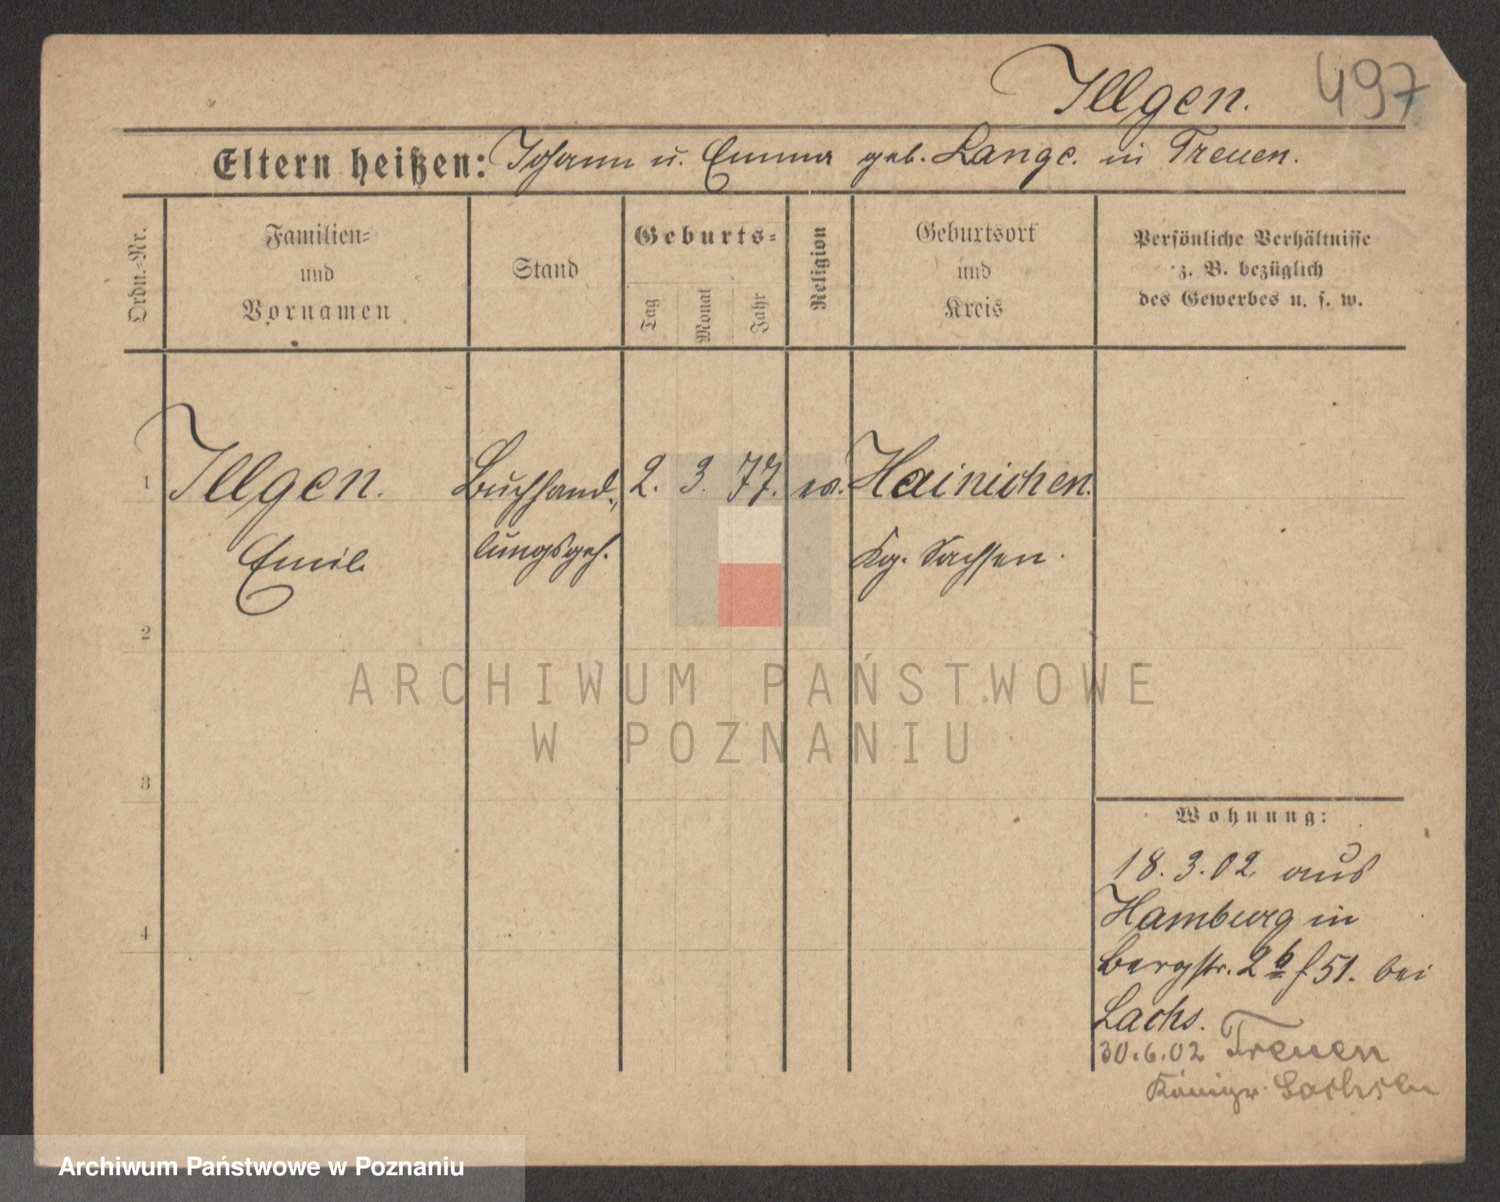 Illgen.
497
Eltern heißen: Johann u. Emma geb. Lange. in Treuen.
Ordn.-Nr.
Familien=
und
Vornamen
Stand
Geburts=
Tag
Monat
Jahr
Religion
Geburtsort
und
Kreis
Persönliche Verhältnisse
z. B. bezüglich
des Gewerbes u. s. w.
1 Illgen. Buchhand= 2. 3. 77. ev. Hainichen.
Emil lungsgeh. Kg. Sachsen.
2
ARCHIWUM PAŃSTWOWE
W POZNANIU
3
Wohnung:
18.3.02 aus
Hamburg in
4
Bergstr. 2b f 51. bei
Lachs.
30.6.02 Treuen
Königr. Sachsen
Archiwum Państwowe w Poznaniu